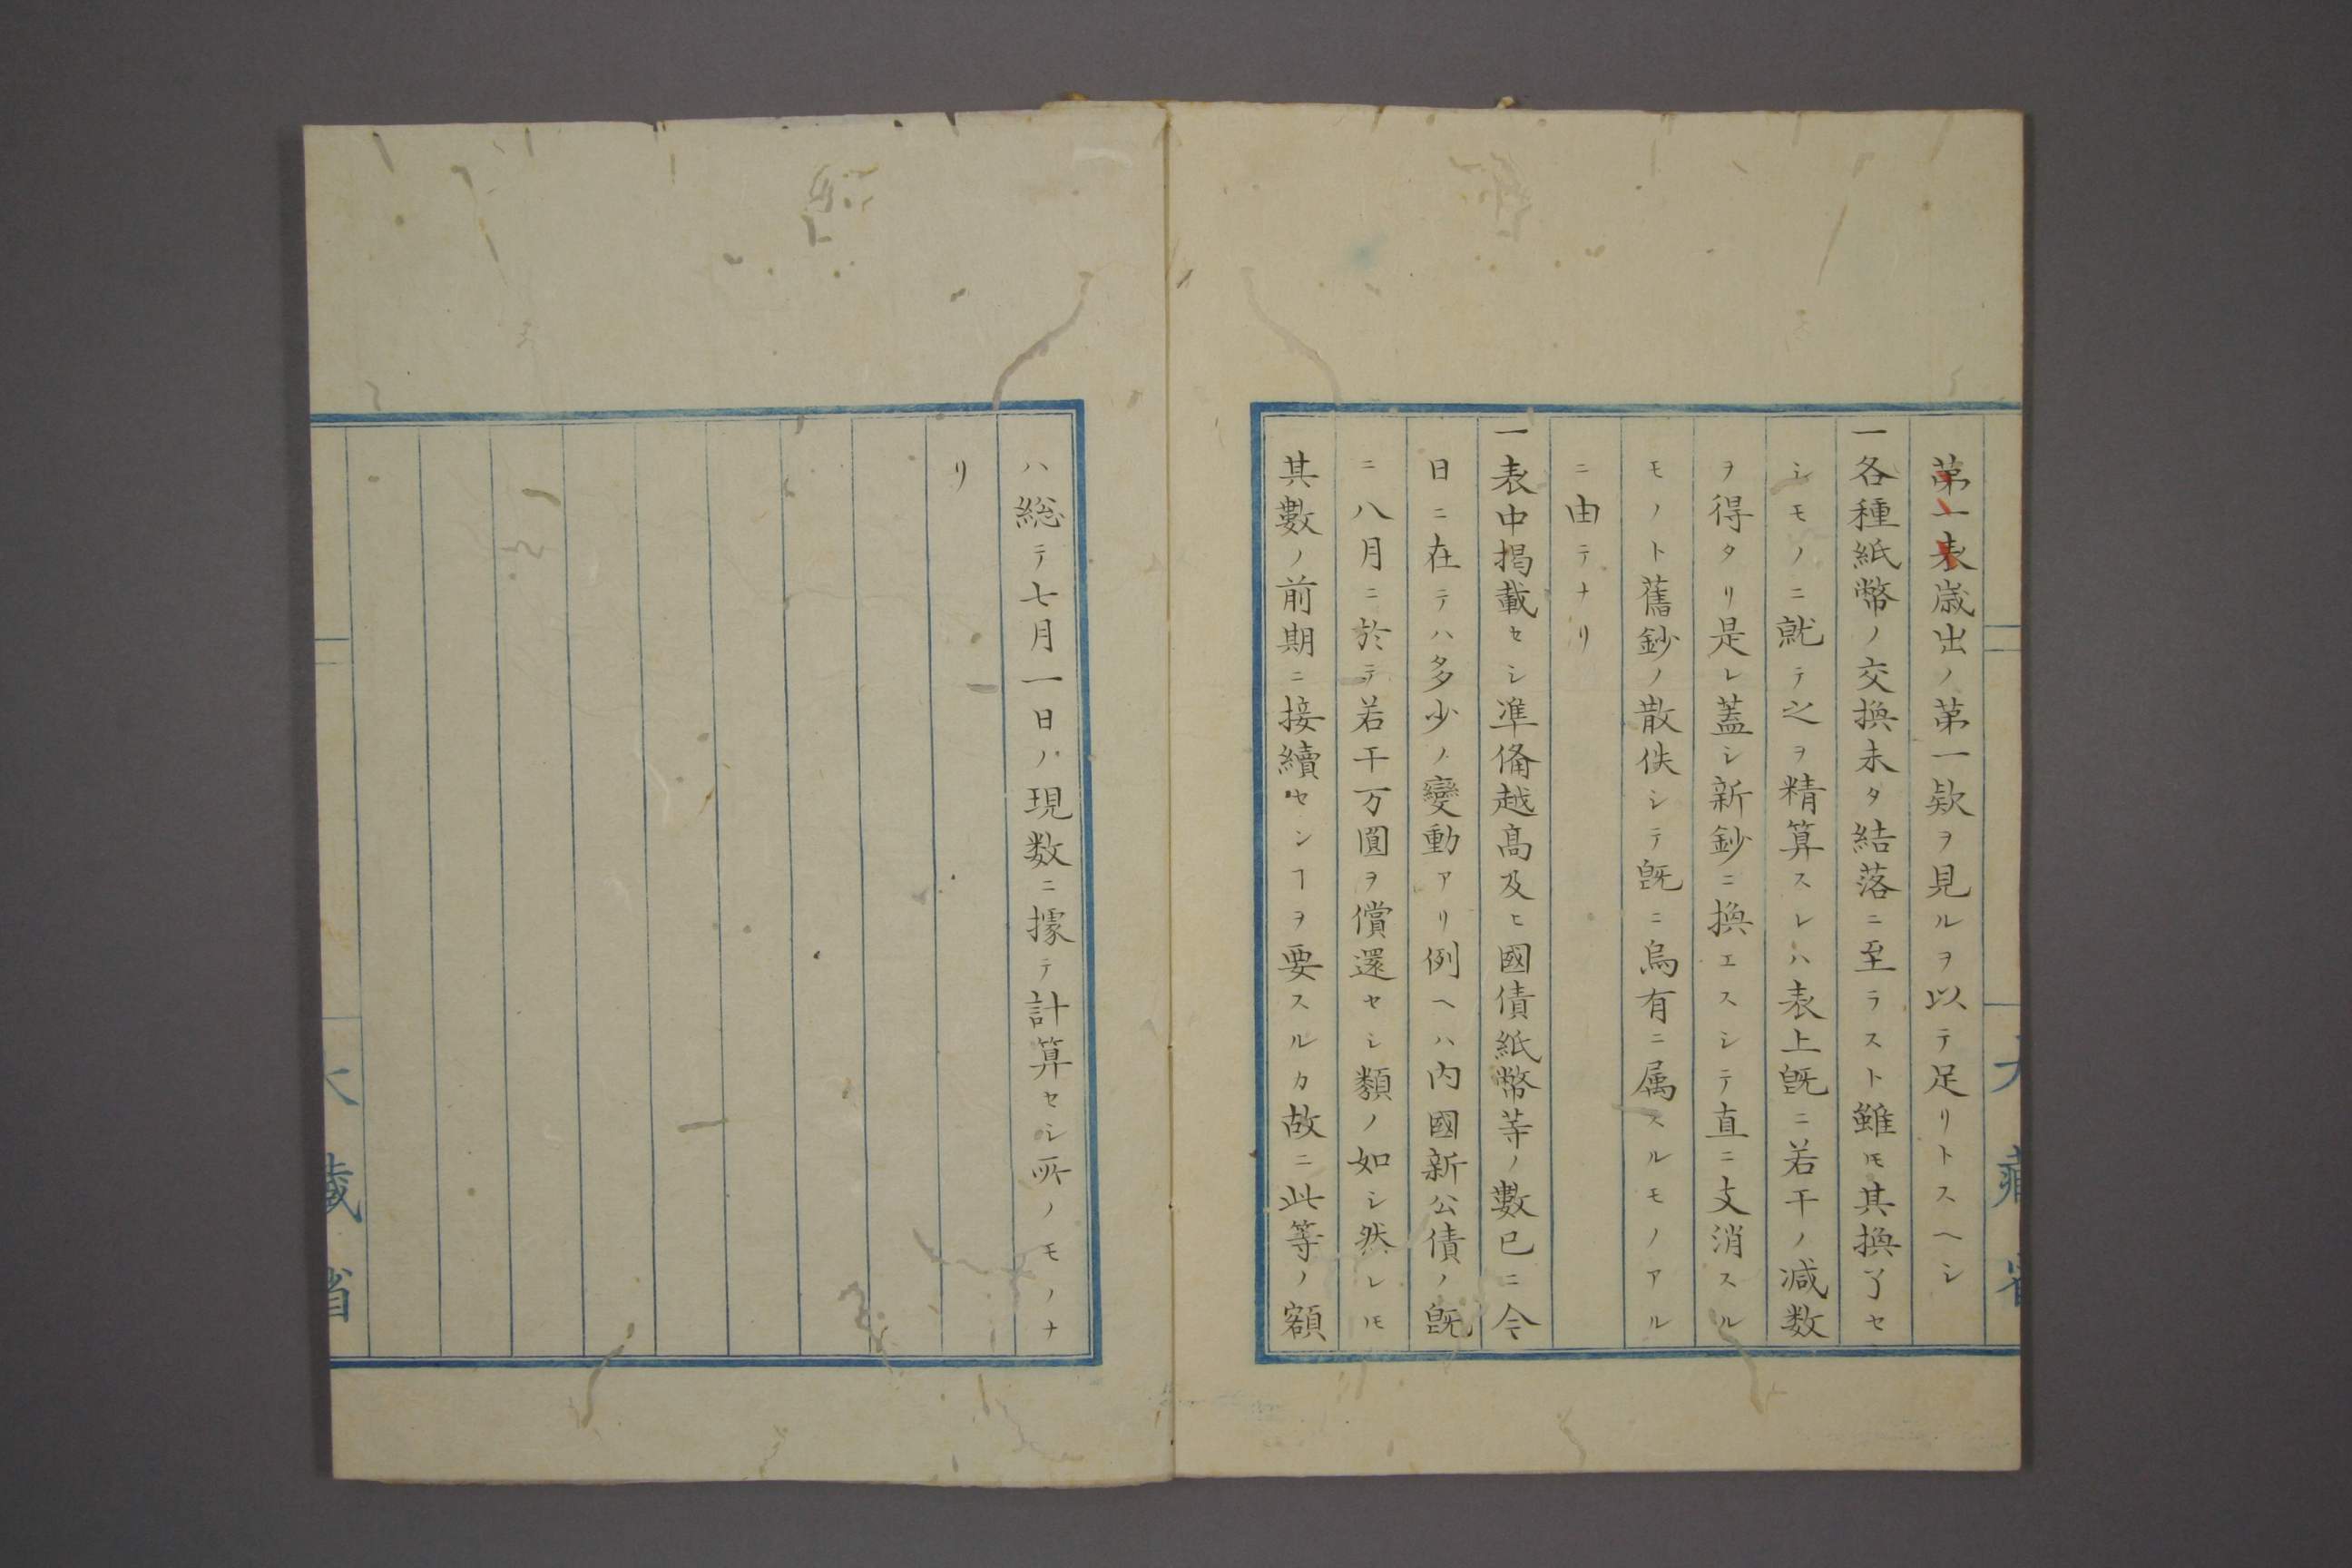 第一表歳出ノ第一欵ヲ見ルヲ以テ足リトスヘシ
一各種紙幣ノ交換未タ結落ニ至ラスト雖𪜈其換了セ
シモノニ就テ之ヲ精算スレハ表上既ニ若干ノ減数
ヲ得タリ是レ蓋シ新鈔ニ換エスシテ直ニ支消スル
モノト舊鈔ノ散佚シテ既ニ烏有ニ属スルモノアル
ニ由テナリ
一表中掲載セシ準備越高及ヒ國債紙幣等ノ數已ニ今
日ニ在テハ多少ノ變動アリ例ヘハ内國新公債ノ既
ニ八月ニ於テ若干万圓ヲ償還セシ類ノ如シ然レ𪜈
其數ノ前期ニ接續センヿヲ要スルカ故ニ此等ノ額
大藏省
ハ総テ七月一日ノ現数ニ據テ計算セシ所ノモノナ
リ
大藏省